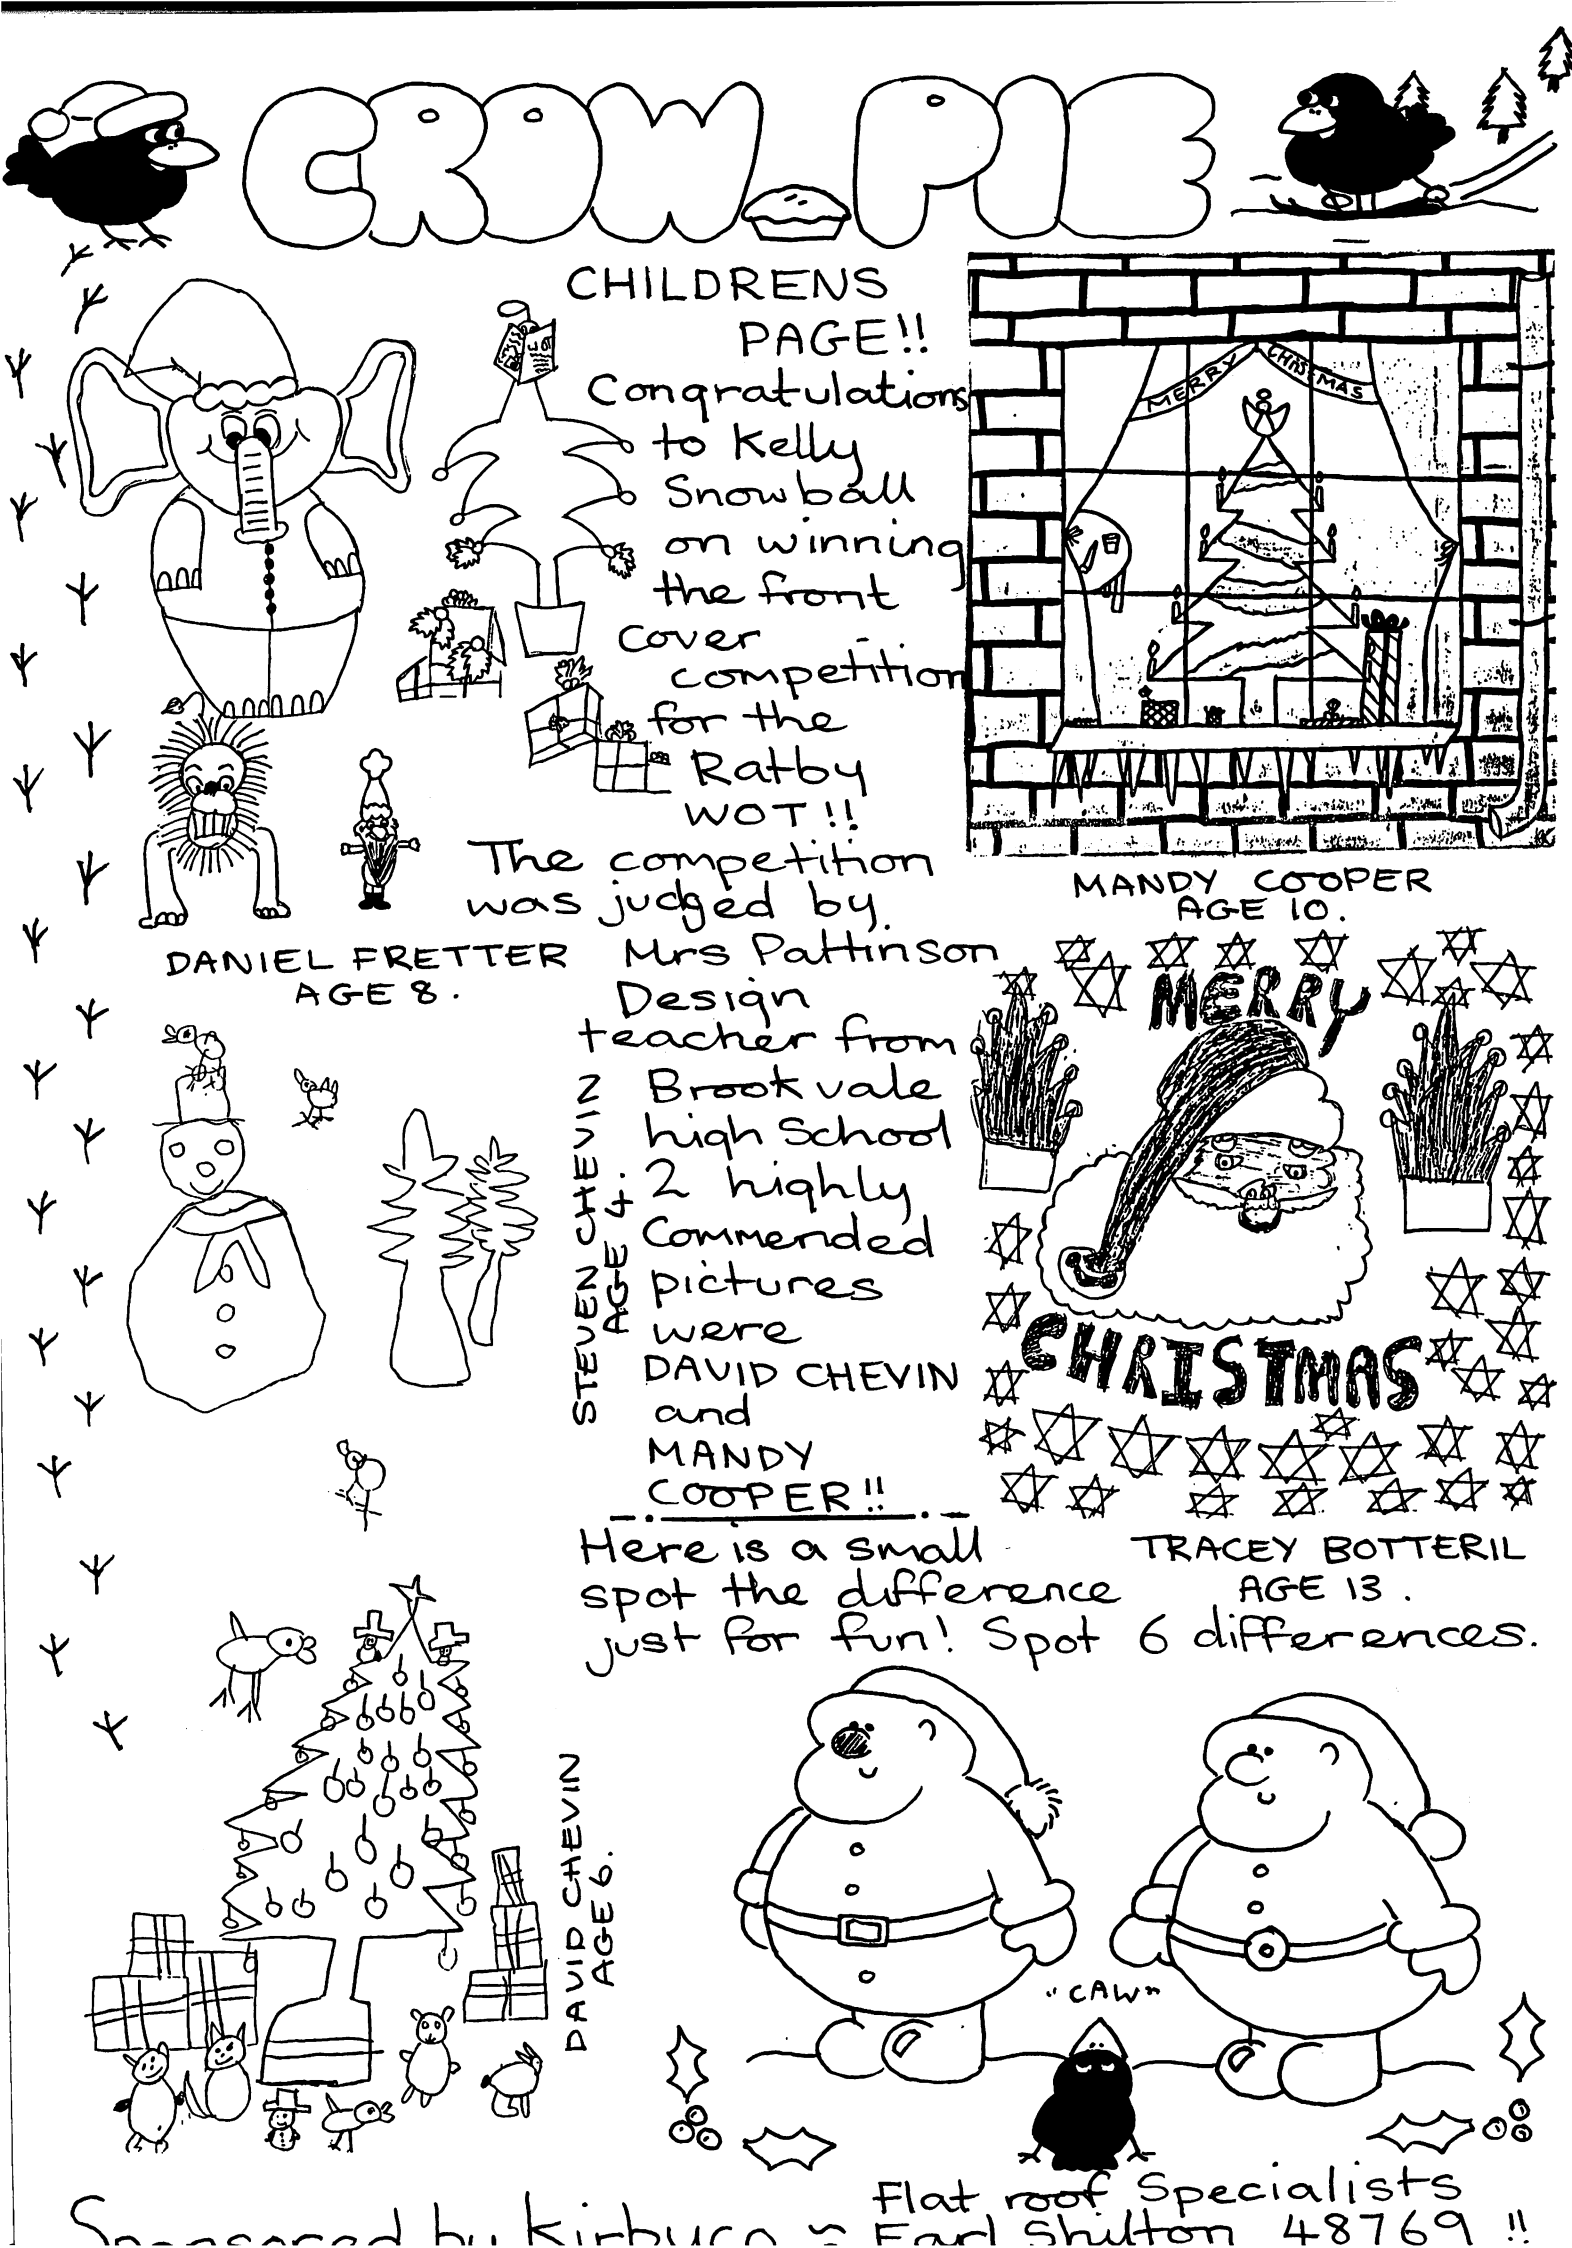 CROW PIE
CHILDRENS
PAGE!!
Congratulations
to Kelly
Snowball
on winning
the front
cover
competition
for the
Ratby
WOT!!
The competition
was judged by.
Mrs Pattinson
Design
teacher from
Brookvale
high School
2 highly
Commended
pictures
were
DAVID CHEVIN
and
MANDY
COOPER!!
MERRY CHRISTMAS
MANDY COOPER
AGE 10.
DANIEL FRETTER
AGE 8.
STEVEN CHEVIN
AGE 4.
MERRY
CHRISTMAS
TRACEY BOTTERIL
AGE 13.
Here is a small
spot the difference
just for fun! Spot 6 differences.
DAVID CHEVIN
AGE 6.
"CAW"
Flat roof Specialists
Sponsored by Earl Shilton 48769 !!